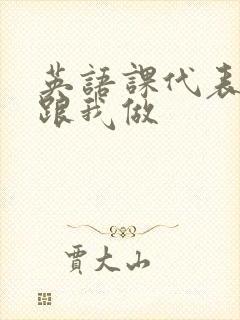 英語課代表
跟我做
賈大山